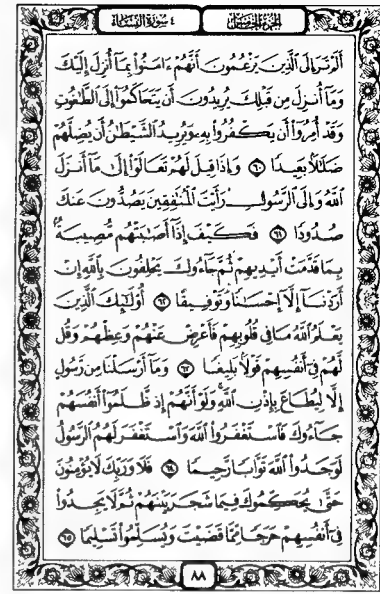 الجزء الخامس ٤ سورة النساء
أَلَمْ تَرَ إِلَى الَّذِينَ يَزْعُمُونَ أَنَّهُمْ ءَامَنُوا بِمَا أُنزِلَ إِلَيْكَ
وَمَا أُنزِلَ مِن قَبْلِكَ يُرِيدُونَ أَن يَتَحَاكَمُوا إِلَى الطَّاغُوتِ
وَقَدْ أُمِرُوا أَن يَكْفُرُوا بِهِ وَيُرِيدُ الشَّيْطَانُ أَن يُضِلَّهُمْ
ضَلَالًا بَعِيدًا ٦٠ وَإِذَا قِيلَ لَهُمْ تَعَالَوْا إِلَى مَا أَنزَلَ
اللَّهُ وَإِلَى الرَّسُولِ رَأَيْتَ الْمُنَافِقِينَ يَصُدُّونَ عَنكَ
صُدُودًا ٦١ فَكَيْفَ إِذَا أَصَابَتْهُم مُّصِيبَةٌ
بِمَا قَدَّمَتْ أَيْدِيهِمْ ثُمَّ جَاءُوكَ يَحْلِفُونَ بِاللَّهِ إِنْ
أَرَدْنَا إِلَّا إِحْسَانًا وَتَوْفِيقًا ٦٢ أُولَٰئِكَ الَّذِينَ
يَعْلَمُ اللَّهُ مَا فِي قُلُوبِهِمْ فَأَعْرِضْ عَنْهُمْ وَعِظْهُمْ وَقُل
لَّهُمْ فِي أَنفُسِهِمْ قَوْلًا بَلِيغًا ٦٣ وَمَا أَرْسَلْنَا مِن رَّسُولٍ
إِلَّا لِيُطَاعَ بِإِذْنِ اللَّهِ وَلَوْ أَنَّهُمْ إِذ ظَّلَمُوا أَنفُسَهُمْ
جَاءُوكَ فَاسْتَغْفَرُوا اللَّهَ وَاسْتَغْفَرَ لَهُمُ الرَّسُولُ
لَوَجَدُوا اللَّهَ تَوَّابًا رَّحِيمًا ٦٤ فَلَا وَرَبِّكَ لَا يُؤْمِنُونَ
حَتَّىٰ يُحَكِّمُوكَ فِيمَا شَجَرَ بَيْنَهُمْ ثُمَّ لَا يَجِدُوا
فِي أَنفُسِهِمْ حَرَجًا مِّمَّا قَضَيْتَ وَيُسَلِّمُوا تَسْلِيمًا ٦٥
٨٨